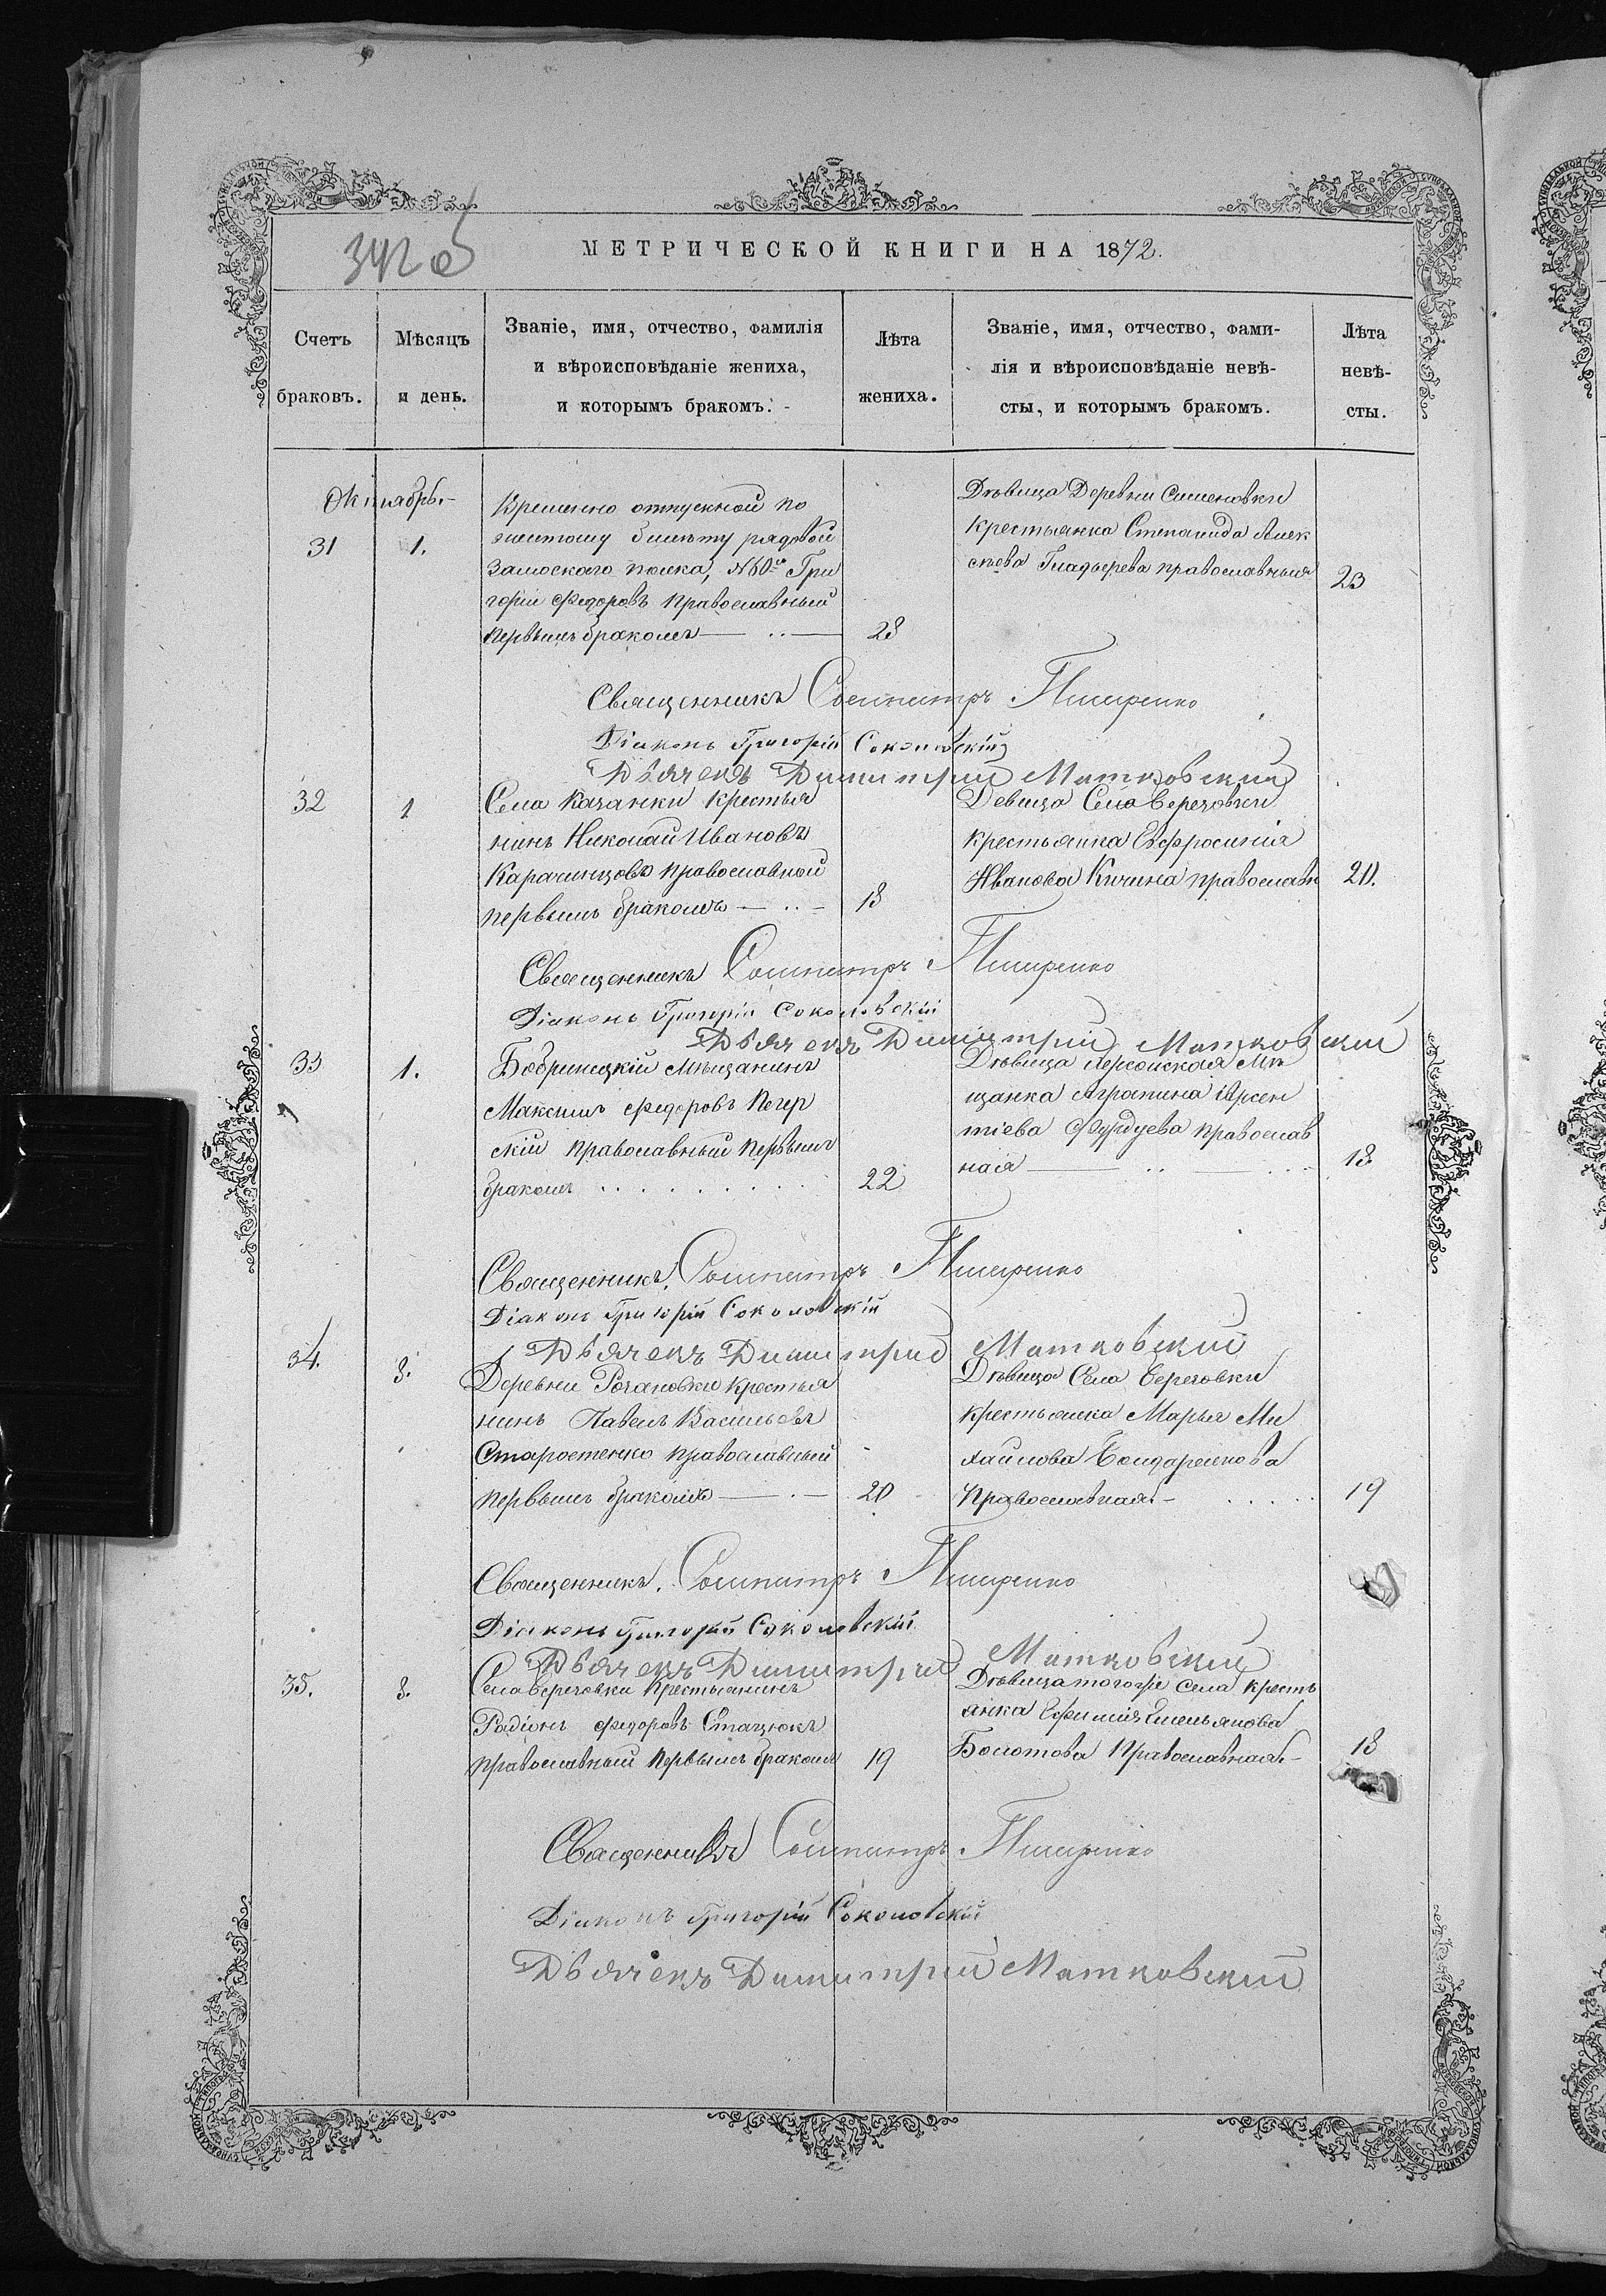 342 об
МЕТРИЧЕСКОЙ КНИГИ НА 1872.
Счетъ браковъ.
Мѣсяцъ и день.
Званіе, имя, отчество, фамилія
и вѣроисповѣданіе жениха,
и которымъ бракомъ.
Лѣта жениха.
Званіе, имя, отчество, фами-
лія и вѣроисповѣданіе невѣ-
сты, и которымъ бракомъ.
Лѣта невѣ-
сты.
Октябрь.
31 1.
Временно отпускной по
билету рядовой
Замоскаго полка, №60го Гри
горій Федоровъ православный
первымъ бракомъ 28
Дѣвица Деревни Сименовки
крестьянка Степанида Алек
сѣева православныя 23
Священникъ Сосипатръ
Діаконъ Григорій Соколовскій
Дьячекъ Димитрий Матковский
32 1
Села Качанки крестья
нинъ Николай Ивановъ
православной
первымъ бракомъ 18
Девица Села Березовки
крестьянка Евфросинія
Иванова Кичина православн 20.
Священникъ Сосипатръ
Діаконъ Григорій Соколовскій
Дьячекъ Димитрий Матковский
33 1.
Бобринецкій мѣщанинъ
Максимъ Федоровъ Печер
скій православный первымъ
бракомъ 22
Дѣвица Херсонская Мѣ
щанка Агрипина Арсен
тіева православ
ная 18
Священникъ Сосипатръ
Діаконъ Григорій Соколовскій
Дьячекъ Димитрий Матковский
34. 8.
Деревни Рочановки крестья
нинъ Павелъ Васильевъ
Старостенко православный
первымъ бракомъ 20
Дѣвица Села Березовки
крестьянка Марья Ми
хайлова Бондаренкова
Православная 19
Священникъ Сосипатръ
Діаконъ Григорій Соколовскій
Дьячекъ Димитрий Матковский
35. 8.
Села Березовки Крестьянинъ
Радіонъ Федоровъ Стацюкъ
православный первымъ бракомъ 19
Дѣвица тогоже села кресть
янка Ефимія Емельянова
Болотова Православная 18
Священникъ Сосипатръ
Діаконъ Григорій Соколовскій
Дьячекъ Димитрий Матковский